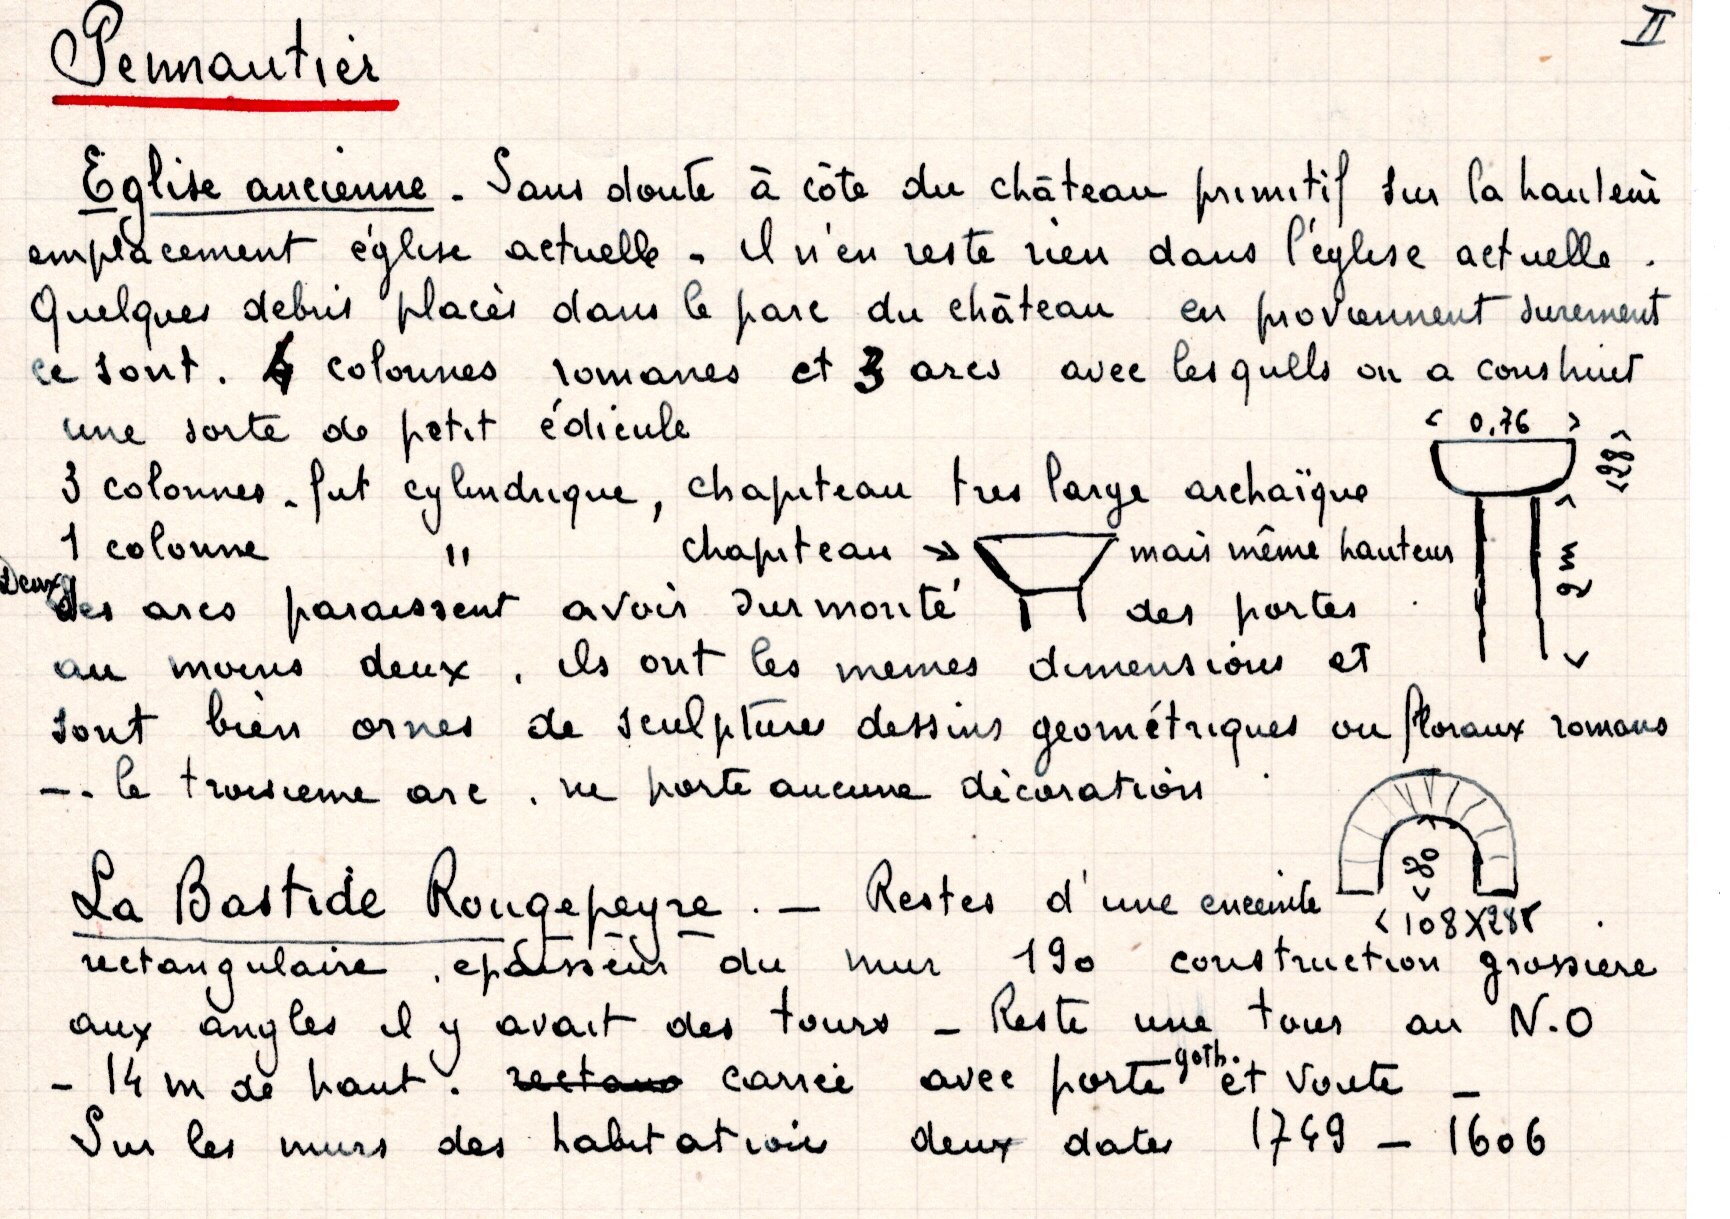 II
Pennautier
Eglise ancienne - Sans doute à côte du château primitif sur la hauteur
emplacement église actuelle - il n'en reste rien dans l'église actuelle.
Quelques debris placés dans le parc du château en proviennent surement
ce sont. 4 colonnes romanes et 3 arcs avec lesquells on a construit
une sorte de petit édicule
< 0,76 >
<28>
3 colonnes - fut cylindrique, chapiteau tres large archaïque
1 colonne " chapiteau → mais même hauteur
< 2m >
Deux
des arcs paraissent avoir surmonté des portes
au moins deux. ils ont les memes dimensions et
sont bien ornes de sculptures dessins geométriques ou floraux romans
-. le troisieme arc. ne porte aucune décoration
<80>
La Bastide Rougepeyre. - Restes d'une enceinte
< 108 X 28
rectangulaire. epaisseur du mur 190 construction grossiere
aux angles il y avait des tours - Reste une tour au N.O
- 14 m de haut. rectang carrée avec porte goth. et voute -
Sur les murs des habitations deux dates 1749 - 1606